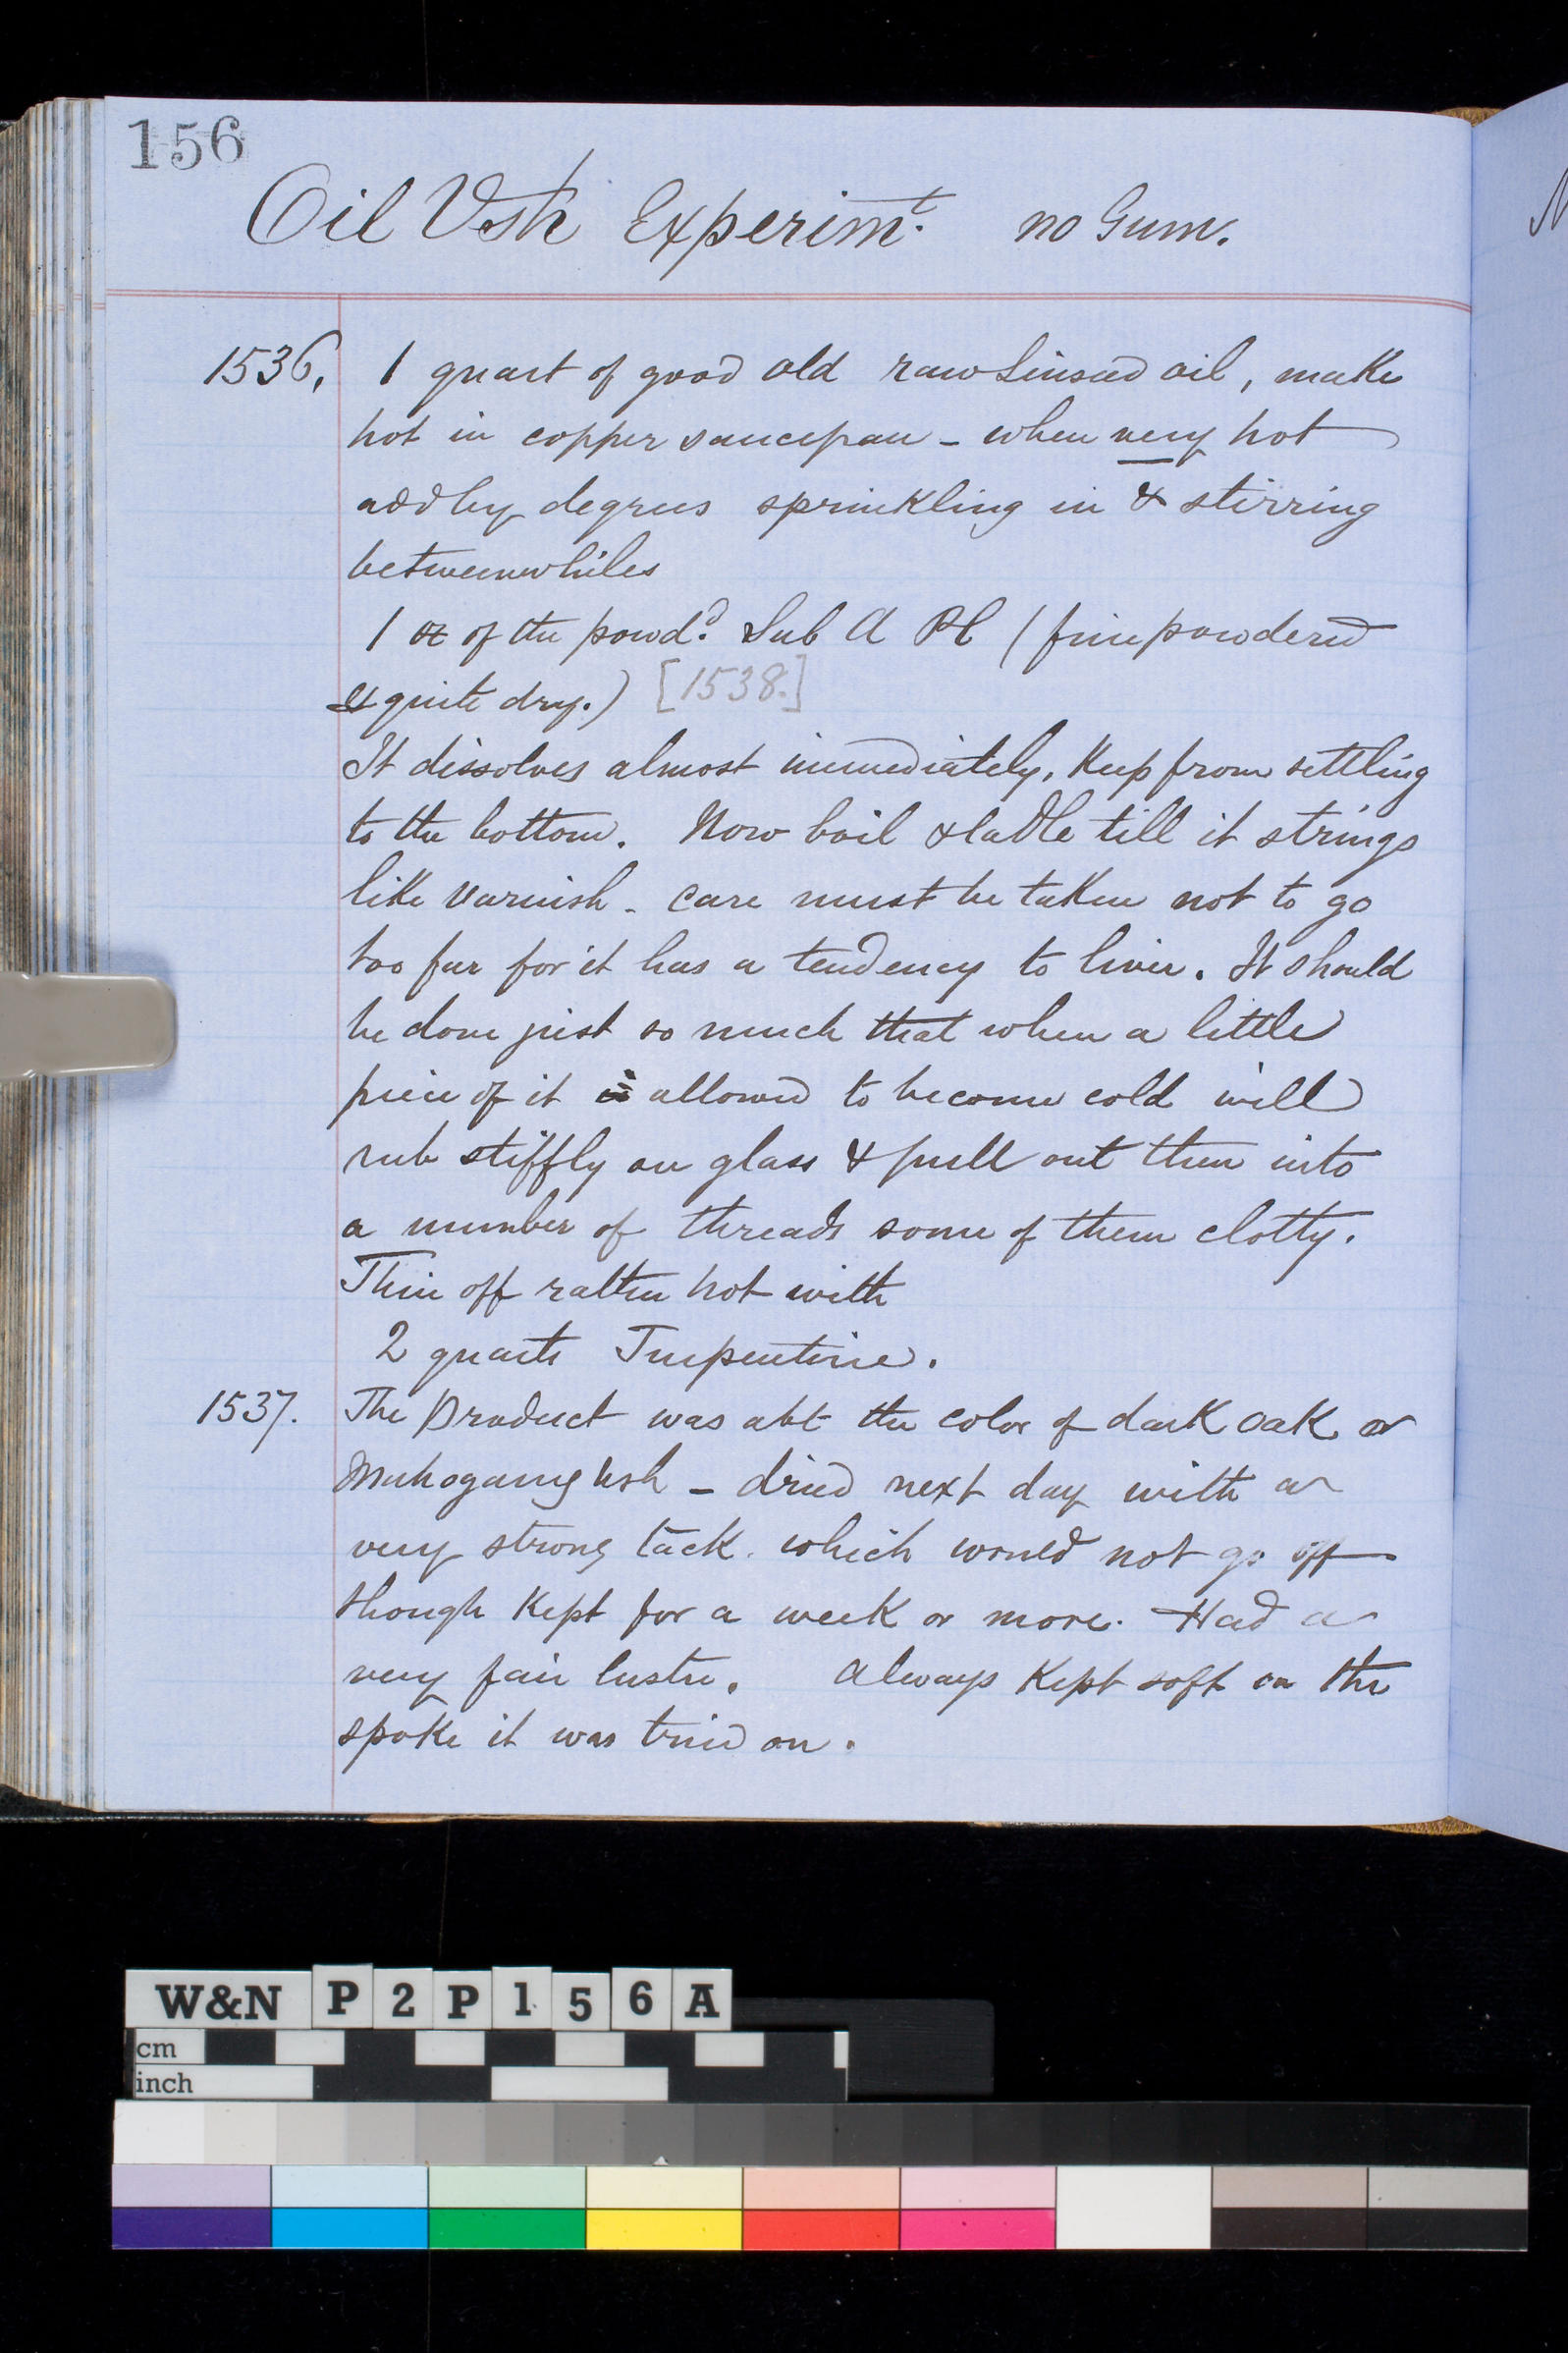 156
Oil Vsh Experimt. no Gum.
1536. 1 quart of good old raw Linseed oil, make
hot in copper saucepan - when very hot
add by degrees sprinkling in & stirring
betweenwhiles
1 oz of the powd. Sub A Pb (fine powdered
& quite dry.) [1538.]
It dissolves almost immediately. Keep from settling
to the bottom. Now boil & ladle till it strings
like varnish - care must be taken not to go
too far for it has a tendency to liver. It should
be done just so much that when a little
piece of it is allowed to become cold will
rub stiffly on glass & pull out then into
a number of threads some of them clotty.
Thin off rather hot with
2 quarts Turpentine.
1537. The Product was abt the color of dark oak or
Mahogany Vsh - dried next day with a
very strong tack. which would not go off
though kept for a week or more. Had a
very fair lustre. Always kept soft on the
spoke it was tried on.
N
W&N P2P156A
cm
inch